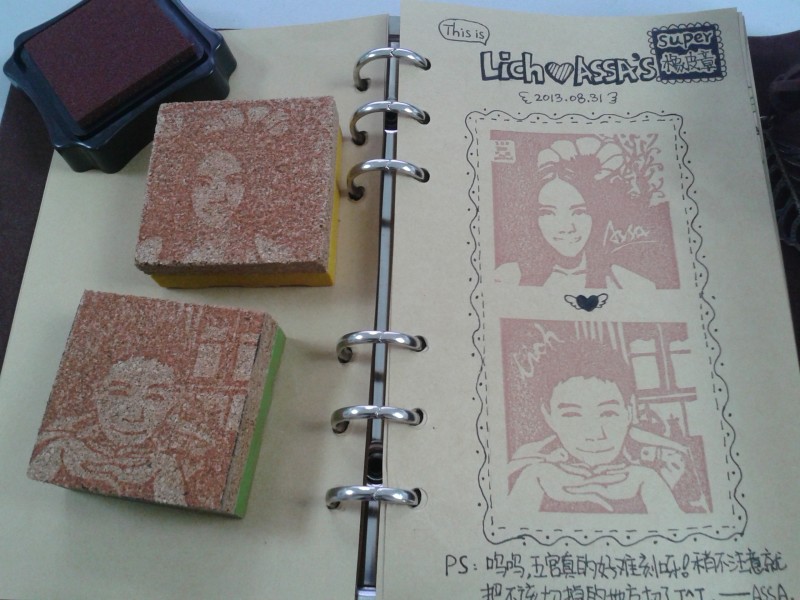 This is
Lich ASSA'S
super
橡皮章
2013.08.31
Assa
Lich
PS: 呜呜,五官真的好难刻呀!稍不注意就
把不该切掉的地方切了TAT ——ASSA.